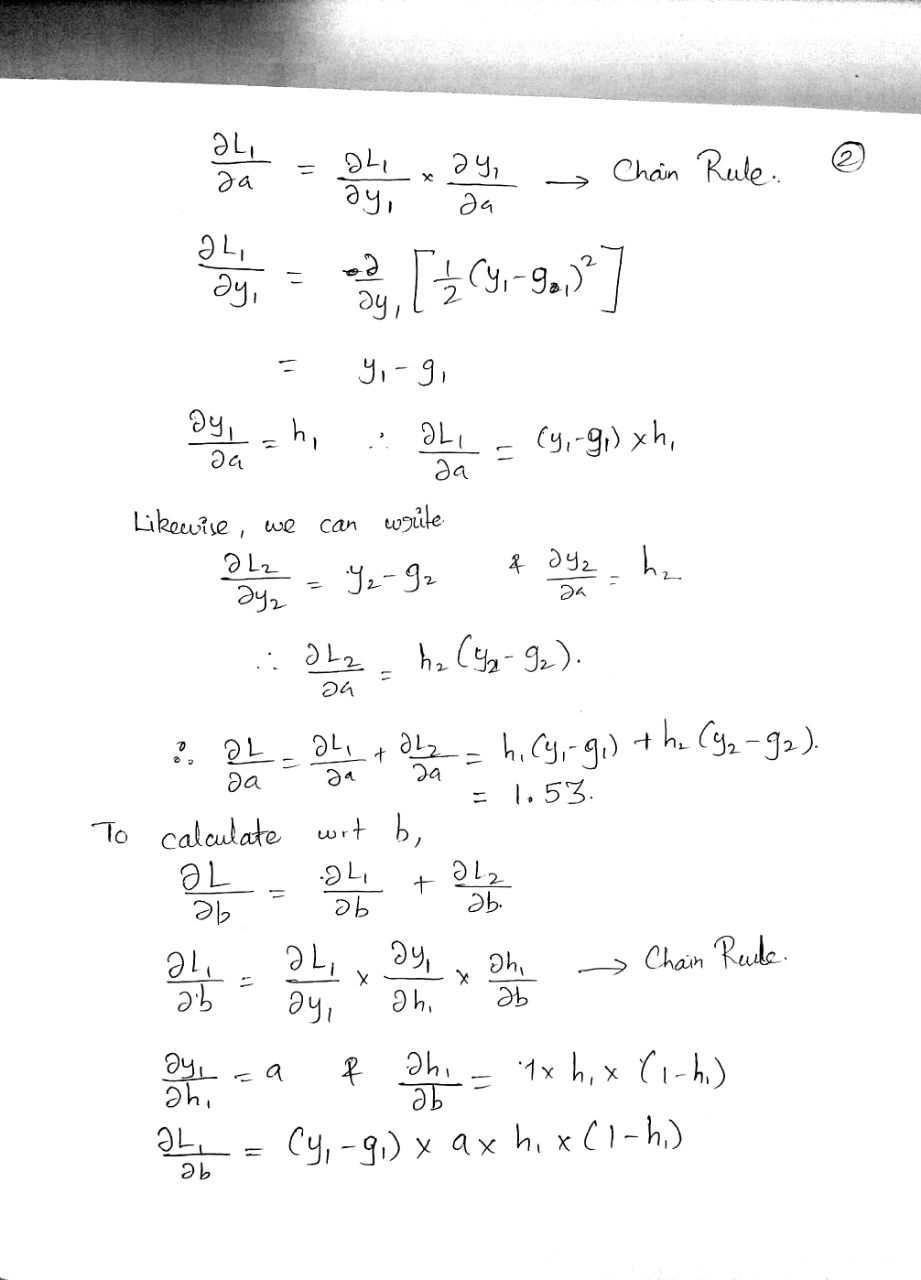 ②
∂L₁/∂a = ∂L₁/∂y₁ × ∂y₁/∂a → Chain Rule.
∂L₁/∂y₁ = ∂/∂y₁ [ 1/2 (y₁-g₁)² ]
= y₁ - g₁
∂y₁/∂a = h₁ ∴ ∂L₁/∂a = (y₁-g₁) × h₁
Likewise, we can write
∂L₂/∂y₂ = y₂-g₂ & ∂y₂/∂a = h₂
∴ ∂L₂/∂a = h₂ (y₂-g₂).
∴ ∂L/∂a = ∂L₁/∂a + ∂L₂/∂a = h₁(y₁-g₁) + h₂ (y₂-g₂).
= 1.53.
To calculate wrt b,
∂L/∂b = ∂L₁/∂b + ∂L₂/∂b.
∂L₁/∂b = ∂L₁/∂y₁ × ∂y₁/∂h₁ × ∂h₁/∂b → Chain Rule.
∂y₁/∂h₁ = a & ∂h₁/∂b = 1 × h₁ × (1-h₁)
∂L₁/∂b = (y₁-g₁) × a × h₁ × (1-h₁)